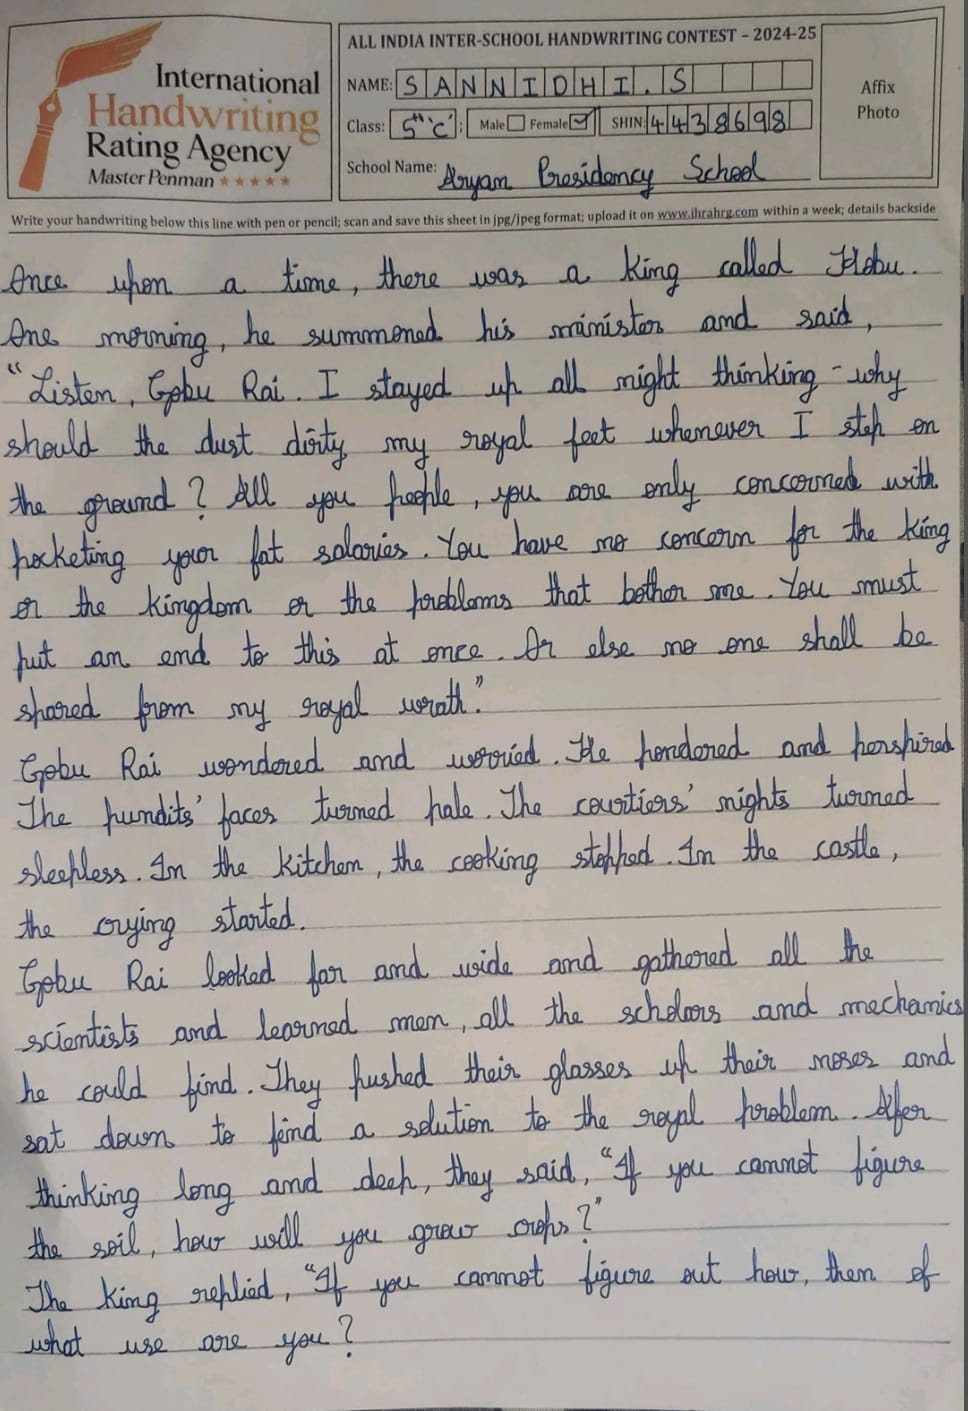 International
Handwriting
Rating Agency
Master Penman ★★★★★
ALL INDIA INTER-SCHOOL HANDWRITING CONTEST – 2024-25
NAME: SANNIDHI.S
Class: 5th 'C' : Male Female SHIN: 4438698
School Name: Aryam Presidency School
Affix
Photo
Write your handwriting below this line with pen or pencil; scan and save this sheet in jpg/jpeg format; upload it on www.ihrahrg.com within a week; details backside
Once upon a time, there was a king called Hobu.
One morning, he summoned his minister and said,
"Listen, Gobu Rai. I stayed up all night thinking - why
should the dust dirty my royal feet whenever I step on
the ground? All you people, you are only concerned with
pocketing your fat salaries. You have no concern for the king
or the kingdom or the problems that bother me. You must
put an end to this at once. Or else no one shall be
spared from my royal wrath."
Gobu Rai wondered and worried. He pondered and perspired
The pundits' faces turned pale. The courtiers' nights turned
sleepless. In the kitchen, the cooking stopped. In the castle,
the crying started.
Gobu Rai looked far and wide and gathered all the
scientists and learned men, all the scholars and mechanics
he could find. They pushed their glasses up their noses and
sat down to find a solution to the royal problem. After
thinking long and deep, they said, "If you cannot figure
the soil, how will you grow crops?"
The king replied, "If you cannot figure out how, then of
what use are you?